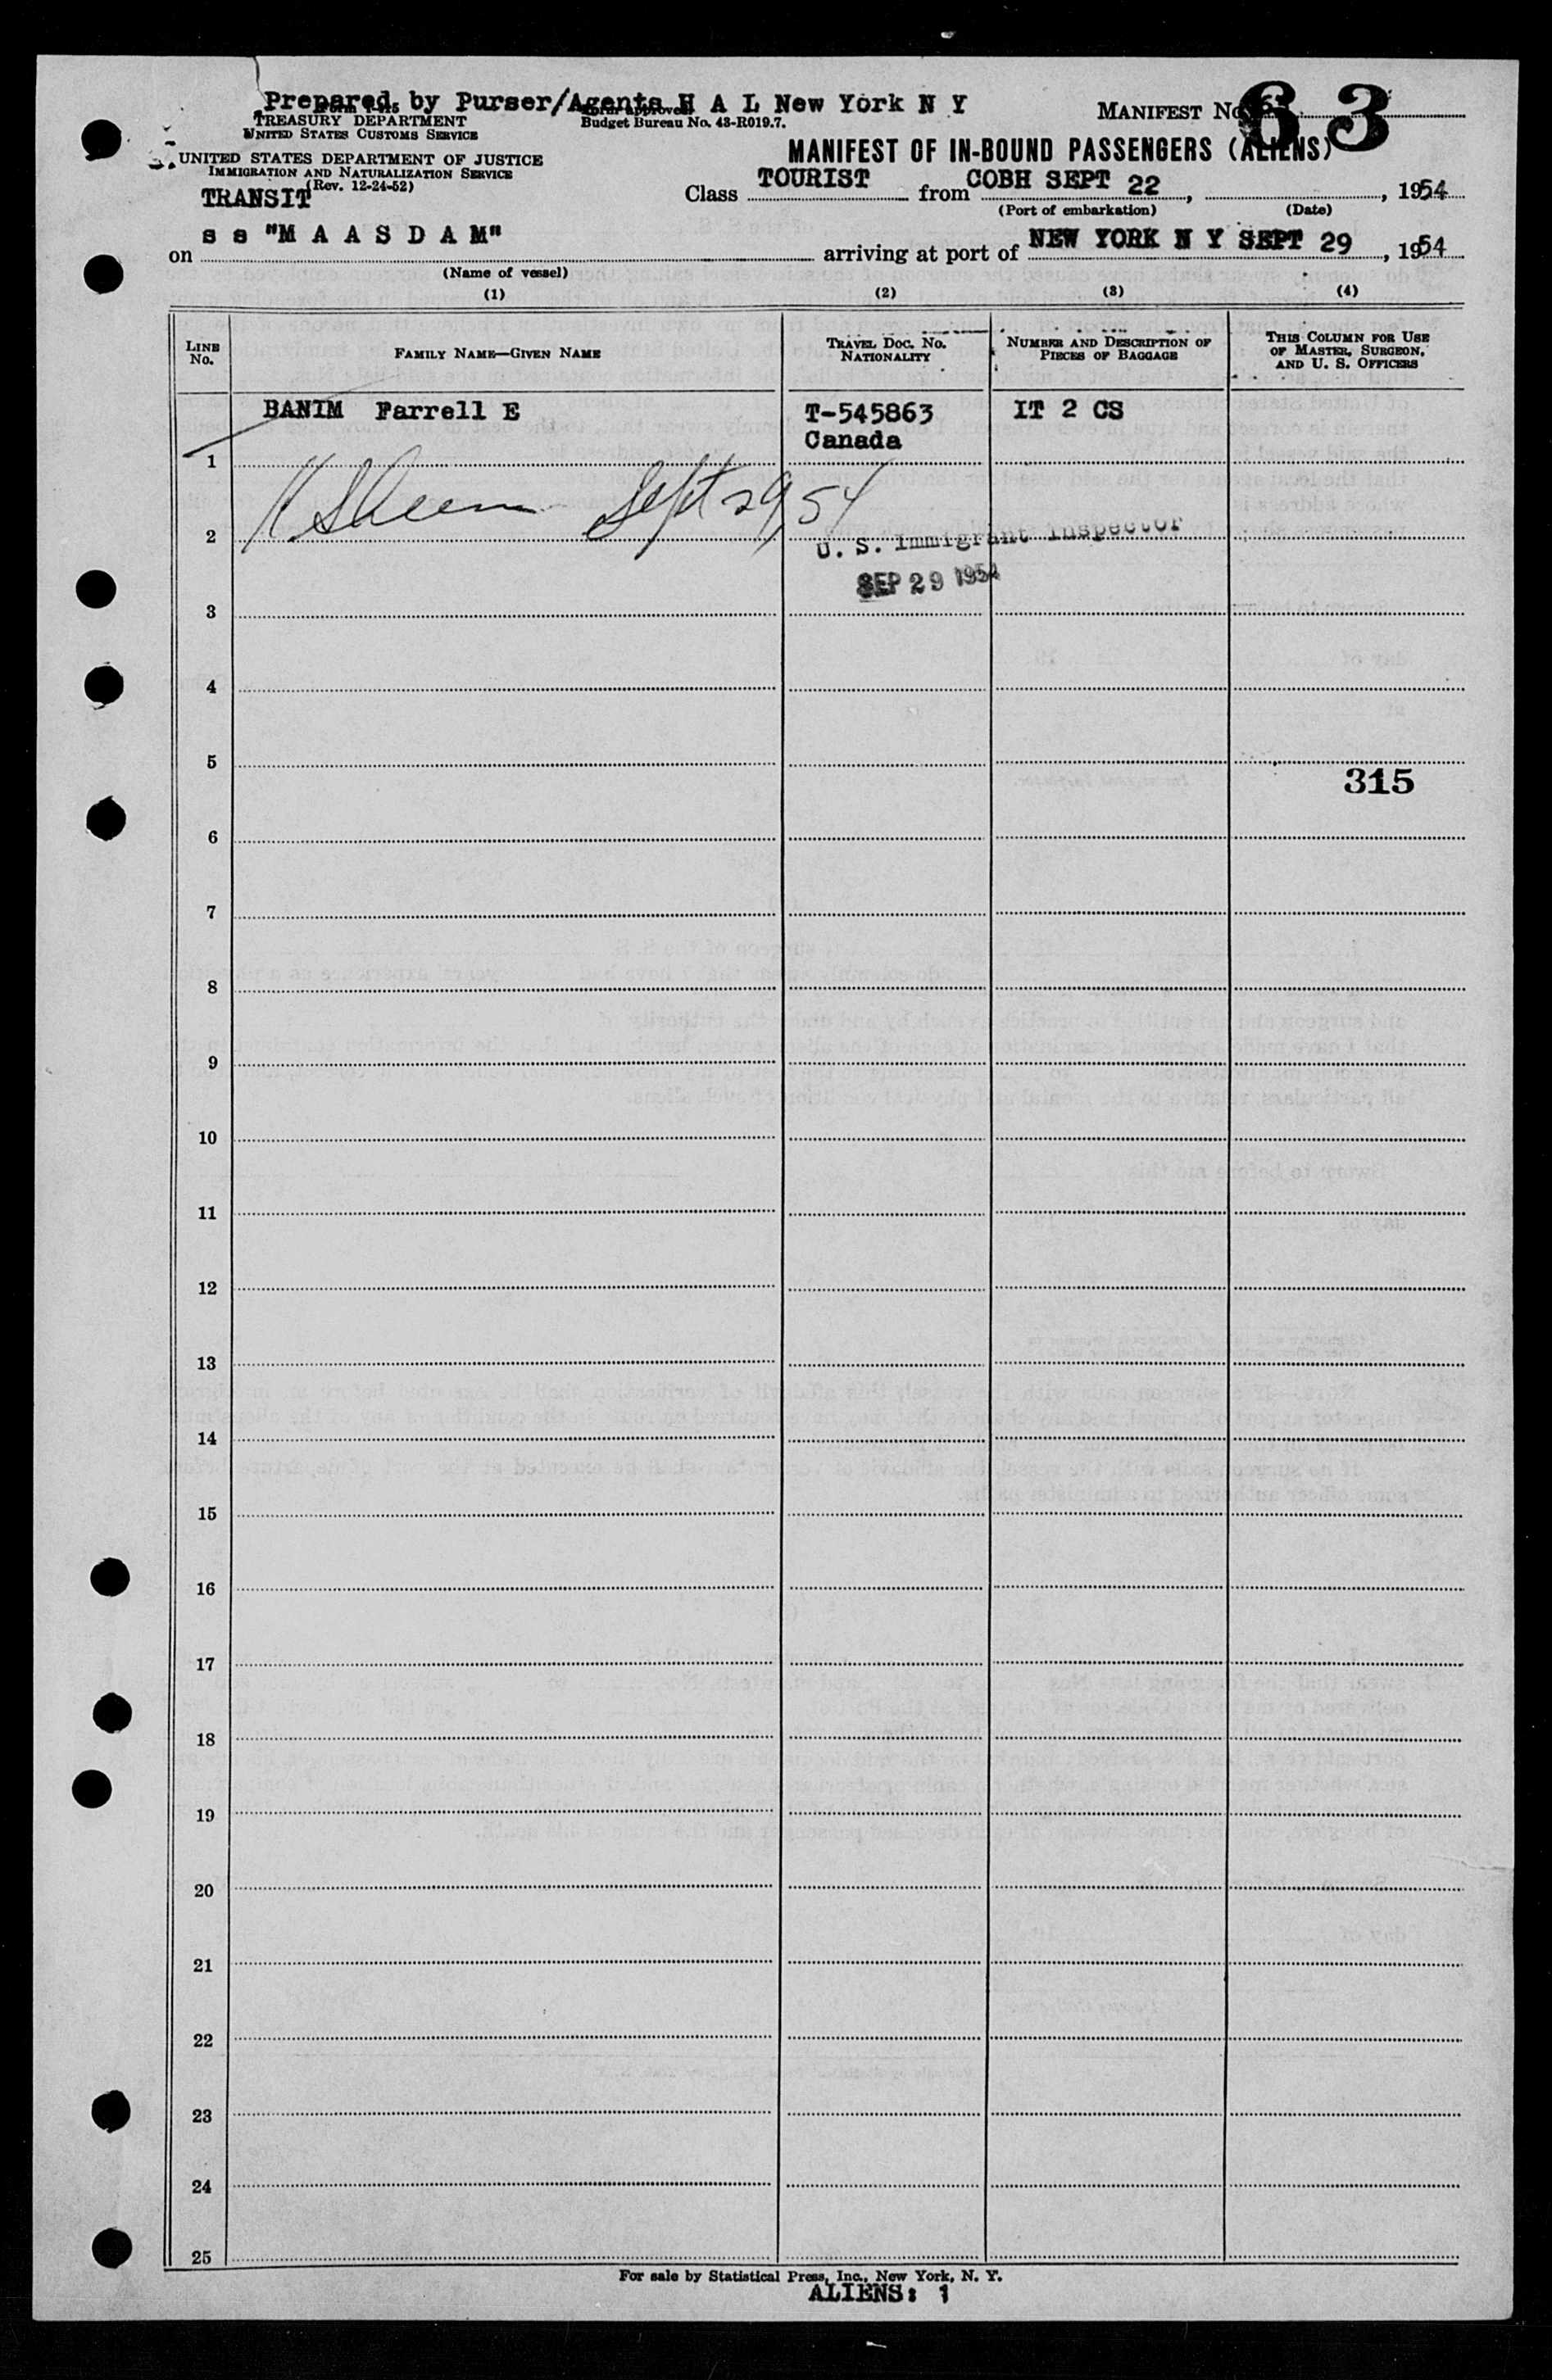 Prepared by Purser/Agents H A L New York N Y
Form approved
Budget Bureau No. 43-R019.7.
TREASURY DEPARTMENT
UNITED STATES CUSTOMS SERVICE
UNITED STATES DEPARTMENT OF JUSTICE
IMMIGRATION AND NATURALIZATION SERVICE
(Rev. 12-24-52)
TRANSIT
MANIFEST No. 63
MANIFEST OF IN-BOUND PASSENGERS (ALIENS)
Class TOURIST from COBH SEPT 22, , 1954
(Port of embarkation) (Date)
on s s "M A A S D A M" arriving at port of NEW YORK N Y SEPT 29, 1954
(Name of vessel)
(1) (2) (3) (4)
LINE No. FAMILY NAME—GIVEN NAME TRAVEL DOC. NO. NATIONALITY NUMBER AND DESCRIPTION OF PIECES OF BAGGAGE THIS COLUMN FOR USE OF MASTER, SURGEON, AND U. S. OFFICERS
BANIM Farrell E T-545863 IT 2 CS
Canada
1
Sept 29, 54
2
U. S. Immigrant Inspector
SEP 29 1954
3
4
5
315
6
7
8
9
10
11
12
13
14
15
16
17
18
19
20
21
22
23
24
25
For sale by Statistical Press, Inc., New York, N. Y.
ALIENS: 1